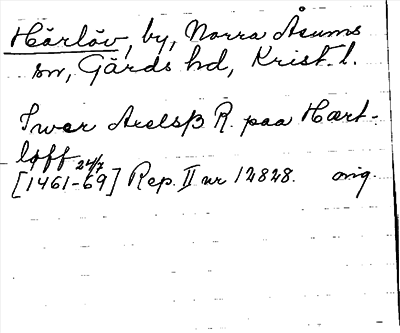 Härlöv, by, Norra Åsums
sn, Gärds hd, Krist. l.
Iwer Axelsβ R. paa Hært-
løff
[1461-69] 24/7 Rep. II nr 12828. orig.